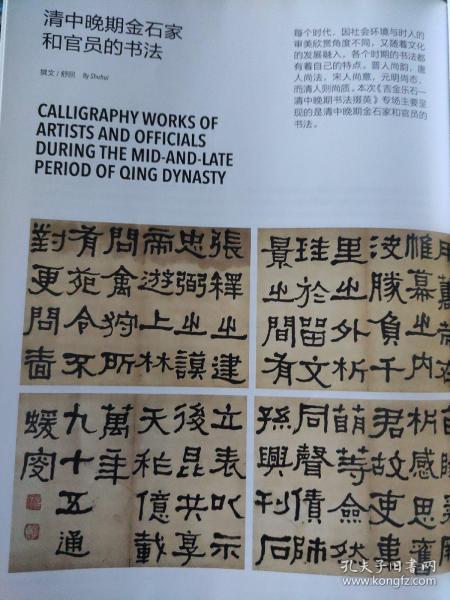 清中晚期金石家
和官员的书法
撰文 / 舒回 By Shuhui
CALLIGRAPHY WORKS OF
ARTISTS AND OFFICIALS
DURING THE MID-AND-LATE
PERIOD OF QING DYNASTY
每个时代，因社会环境与时人的
审美欣赏角度不同，又随着文化
的发展融入，各个时期的书法都
有着自己的特点。晋人尚韵，唐
人尚法，宋人尚意，元明尚态，
而清人则尚质。本次《吉金乐石—
清中晚期书法撷英》专场主要呈
现的是清中晚期金石家和官员的
书法。
張釋之建
忠弼之謨
帝遊上林
問禽狩所
有苑令不
對更問嗇
帷幕之内
決勝負千
里之外析
珪於留文
景之間有
立表以示
後昆共享
天祚億載
萬年
九十五通
蝯叟
析感思舊
君故吏韋
萌等僉然
同聲賃師
孫興刊石
孔夫子旧书网
www.kongfz.com